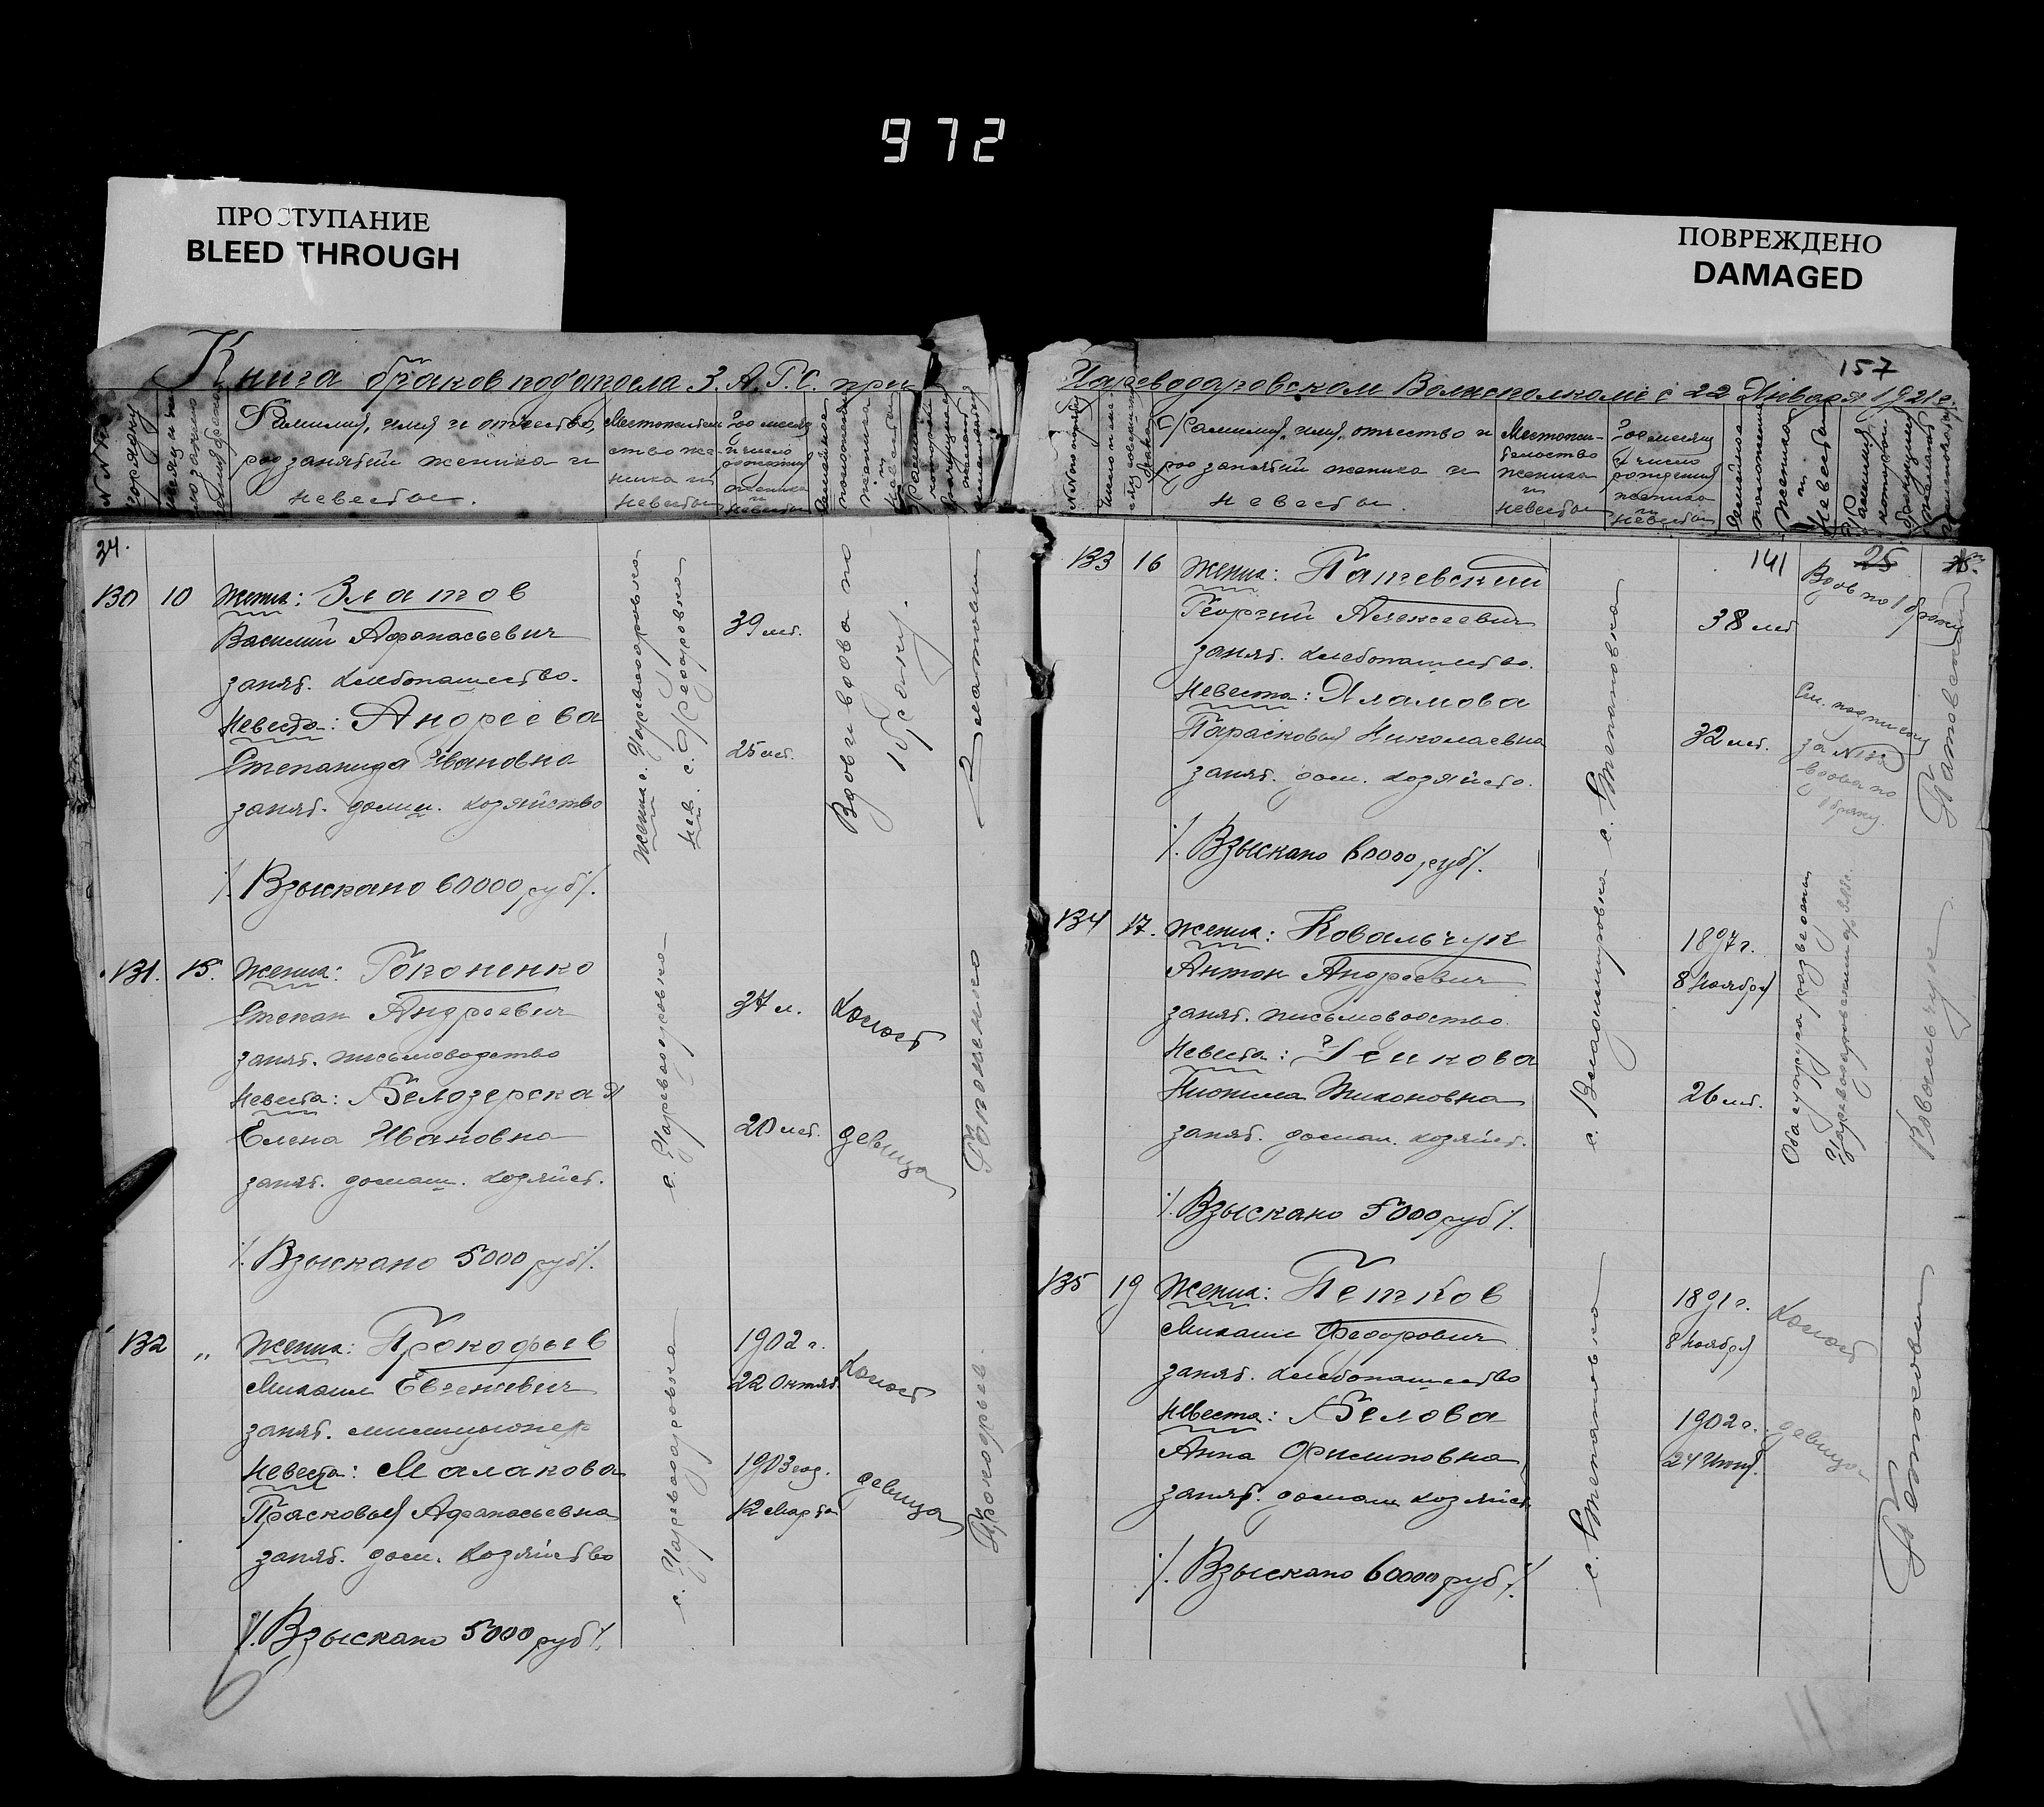 972
ПРОСТУПАНИЕ
BLEED THROUGH
ПОВРЕЖДЕНО
DAMAGED
Книга браков под'отдела З.А.Г.С. при
Фамилия, имя и отчество,
род занятий жениха и
невесты.
Местожитель
ство же-
ниха и
невесты
Год месяц
и число
рождения
жениха
и
невесты
34.
130 10 Жених: Златов
Василий Афанасьевич
занят. хлебопашество.
Невеста: Андреева
Степанида Ивановна
занят. домаш. хозяйство
Жених с. Цареводаровка
Нев. с. Федоровка
39 лет.
25 лет.
Вдов и вдова по
1 браку.
Златовы
% Взыскано 60000 руб %.
131. 15. Жених: Гопоненко
Степан Андреевич
занят. письмоводство
Невеста: Белозерская
Елена Ивановна
занят. домаш. хозяйст.
с. Цареводаровка
37 л.
Холост
20 лет.
девица
Гопоненко
% Взыскано 5000 руб %.
132 „ Жених: Прокофьев
Михаил Евгениевич
занят. милиционер
Невеста: Малахова
Прасковья Афанасьевна
занят. дом. хозяйство
с. Цареводаровка
1902 г.
22 Октяб.
Холост
1903 год.
12 Марта
девица
Прокофьев
% Взыскано 5000 руб %.
157
Цареводаровском Волисполкоме с 22 Января 1921 г.
№№ по порядку
Фамилия, имя, отчество и
род занятий жениха и
невесты.
Местожи-
тельство
жениха
и
невесты
Год месяц
и число
рождения
жениха
и
невесты
Семейное
положение
жениха
и
невесты
141
25
133 16 Жених: Паневский
Георгий Алексеевич
занят. хлебопашество.
Невеста: Аламова
Парасковья Николаевна
занят. дом. хозяйство.
с. Степановка
38 лет
Вдов по 1 браку
32 лет.
См. подписку
вдова по
1 браку.
% Взыскано 60000 руб %.
134 17. Жених: Ковальчук
Антон Андреевич
занят. письмоводство.
Невеста: Генкова
Тихоновна
занят. домаш. хозяйст.
с. Владимировка
1897 г.
8 Ноября
26 лет.
Оба супруга разведены
Ковальчук
% Взыскано 5000 руб %.
135 19 Жених: Петков
Михаил Федорович
занят. хлебопашество
Невеста: Белова
Анна Филиповна
занят. домаш хозяйст
с. Степановка
1891 г.
8 Ноября
Холост
1902 г.
девица
Петковы
% Взыскано 60000 руб %.
11